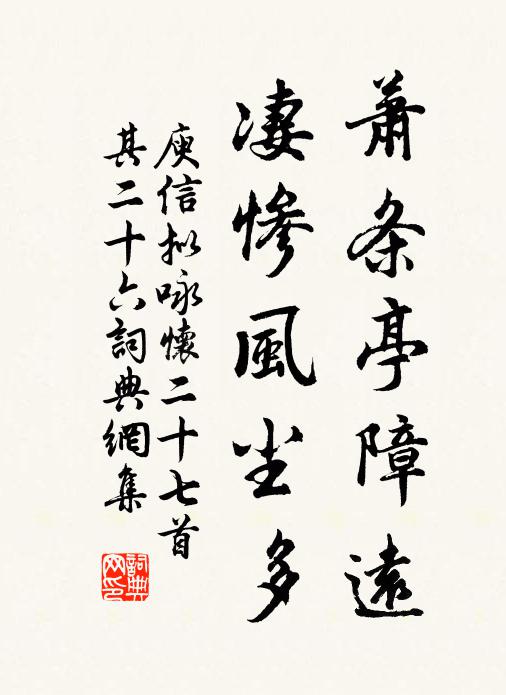 蕭条亭障遠
凄惨風尘多
庾信拟咏懷二十七首
其二十六詞典網集
詞典
网印